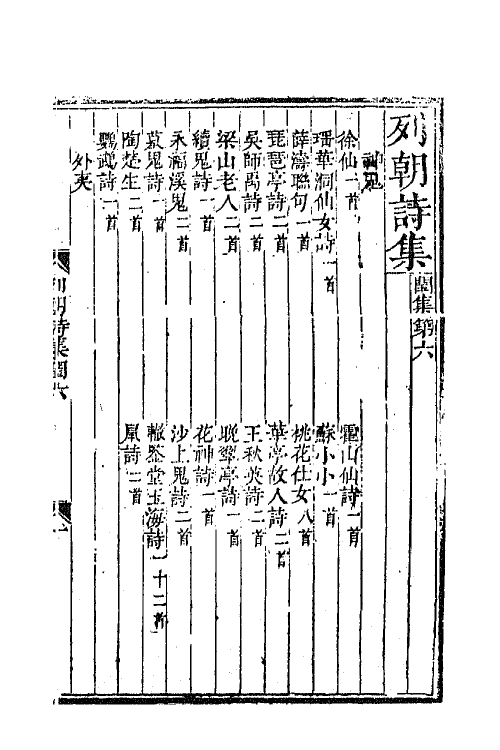 列朝詩集 閏集第六
神鬼
徐仙一首 霍山仙詩一首
瑤華洞仙女詩一首 蘇小小一首
薛濤聯句一首 桃花仕女八首
琵琶亭詩二首 華亭故人詩二首
吳師禹詩二首 王秋英詩二首
梁山老人二首 晚翠亭詩一首
續鬼詩一首 花神詩一首
永福溪鬼二首 沙上鬼詩二首
墓鬼詩一首 堂玉海詩一十二首
陶楚生二首 詩二首
鸚鵡詩一首
外夷
列朝詩集閏六 一